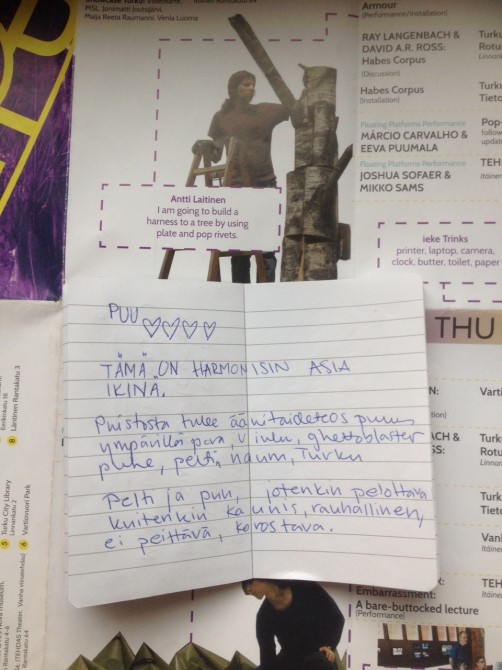 MSL, Jonimatti Joutsijärvi,
Maija Reeta Raumanni, Venla Luoma
Itäinen Rantakatu 64
Armour
(Performance/Installation)
RAY LANGENBACH &
DAVID A.R. ROSS:
Habes Corpus
(Discussion)
Turku
Rotu
Linnan
Habes Corpus
(Installation)
Turku
Tieto
Floating Platforms Performance
MÁRCIO CARVALHO &
EEVA PUUMALA
Pop-
follow
update
Floating Platforms Performance
JOSHUA SOFAER &
MIKKO SAMS
TEH
Itäinen
Antti Laitinen
I am going to build a
harness to a tree by using
plate and pop rivets.
ieke Trinks
printer, laptop, camera,
clock, butter, toilet, paper
THU
PUU
TÄMÄ ON HARMONISIN ASIA
IKINÄ.
Puistosta tulee äänitaideteos puun
ympärillä pora, viulu, ghettoblaster
puhe, pelti, Turku
Pelti ja puu, jotenkin pelottava
kuitenkin kaunis, rauhallinen,
ei peittävä, korostava.
Eerikinkatu 18
8 Läntinen Rantakatu 3
5 Turku City Library
Linnankatu 2
6 Vartiovuori Park
Vartio
ACH &
SS:
Turku
Rotu
Linnan
Turku
Tieto
Vanh
Itäine
Embarrassment:
A bare-buttocked lecture
(Performance)
TEH
Itäine